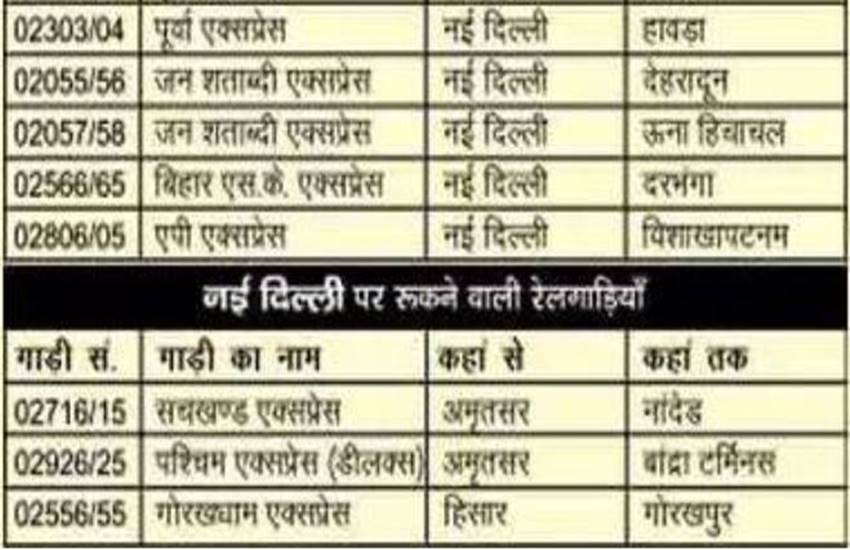 02303/04 पूर्वा एक्सप्रेस नई दिल्ली हावड़ा
02055/56 जन शताब्दी एक्सप्रेस नई दिल्ली देहरादून
02057/58 जन शताब्दी एक्सप्रेस नई दिल्ली ऊना हिचाचल
02566/65 बिहार एस.के. एक्सप्रेस नई दिल्ली दरभंगा
02806/05 एपी एक्सप्रेस नई दिल्ली विशाखापटनम
नई दिल्ली पर रूकने वाली रेलगाड़ियाँ
गाड़ी सं. गाड़ी का नाम कहां से कहां तक
02716/15 सचखण्ड एक्सप्रेस अमृतसर नांदेड
02926/25 पश्चिम एक्सप्रेस (डीलक्स) अमृतसर बांद्रा टर्मिनस
02556/55 गोरखधाम एक्सप्रेस हिसार गोरखपुर